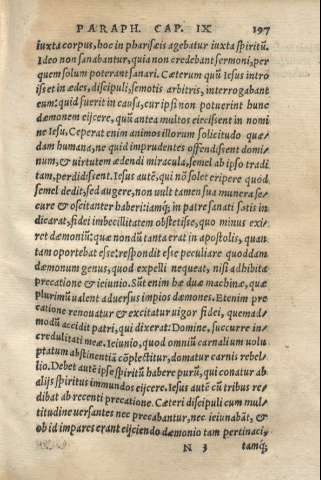 PARAPH. CAP. IX 197
iuxta corpus, hoc in pharisæis agebatur iuxta spiritũ.
Ideo non sanabantur, quia non credebant sermoni, per
quem solum poterant sanari. Cæterum quũ Iesus intro
isset in ædes, discipuli, semotis arbitris, interrogabant
eum: quid fuerit in causa, cur ipsi non potuerint hunc
dæmonem eijcere, quũ antea multos eiecissent in nomi
ne Iesu. Ceperat enim animos illorum solicitudo quæ-
dam humana, ne quid imprudentes offendissent domi-
num, & uirtutem ædendi miracula, semel ab ipso tradi
tam, perdidissent. Iesus autẽ, qui nõ solet eripere quod
semel dedit, sed augere, non uult tamen sua munera se-
cure & oscitanter haberi: iamq; in patre sanati satis in
dicarat, fidei imbecillitatem obstitisse, quo minus exi-
ret dæmoniũ: quæ nondũ tanta erat in apostolis, quan
tam oportebat esse: respõdit esse peculiare quoddam
dæmonum genus, quod expelli nequeat, nisi adhibita
precatione & ieiunio. Sũt enim hæ duæ machinæ, quæ
plurimũ ualent aduersus impios dæmones. Etenim pre
catione renouatur & excitatur uigor fidei, quemad-
modũ accidit patri, qui dixerat: Domine, succurre in-
credulitati meæ. Ieiunio, quod omniũ carnalium uolu
ptatum abstinentiã cõplectitur, domatur carnis rebel-
lio. Debet autẽ ipse spiritũ habere purũ, qui conatur ab
alijs spiritus immundos eijcere. Iesus autẽ cũ tribus re-
dibat ab recenti precatione. Cæteri discipuli cum mul
titudine uersantes nec precabantur, nec ieiunabãt, &
ob id impares erant eijciendo dæmonio tam pertinaci,
N 3 tamq;